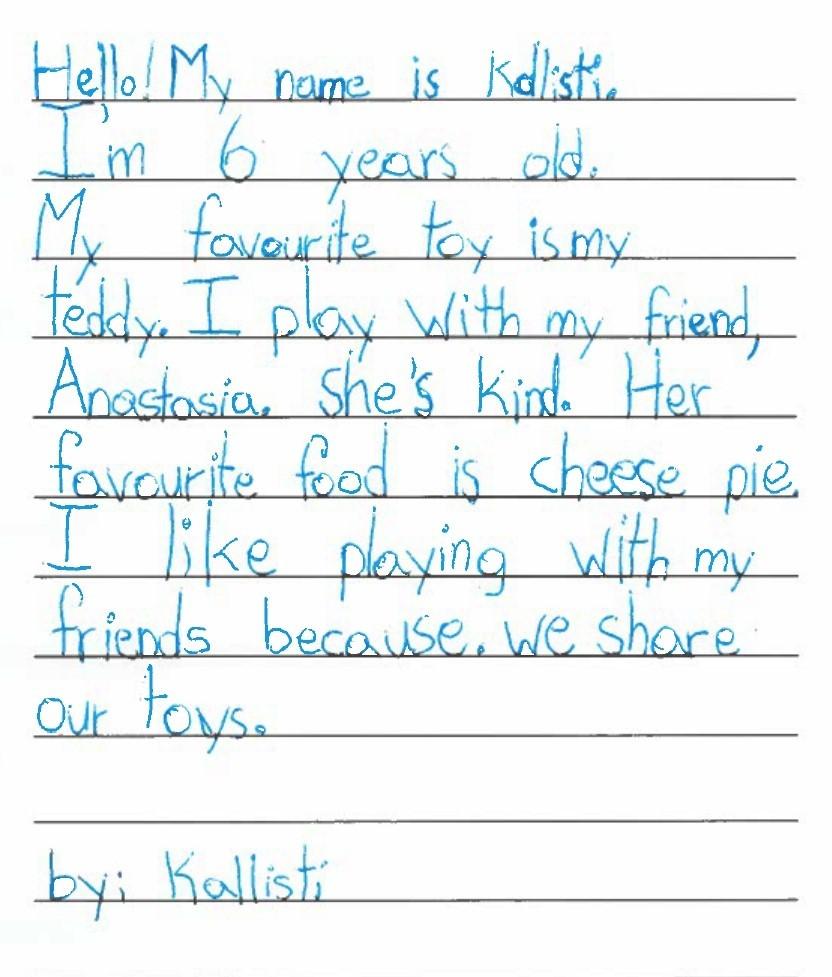 Hello! My name is Kallisti.
I'm 6 years old.
My favourite toy is my
teddy. I play with my friend,
Anastasia. She's kind. Her
favourite food is cheese pie.
I like playing with my
friends because. we share
our toys.
by: Kallisti